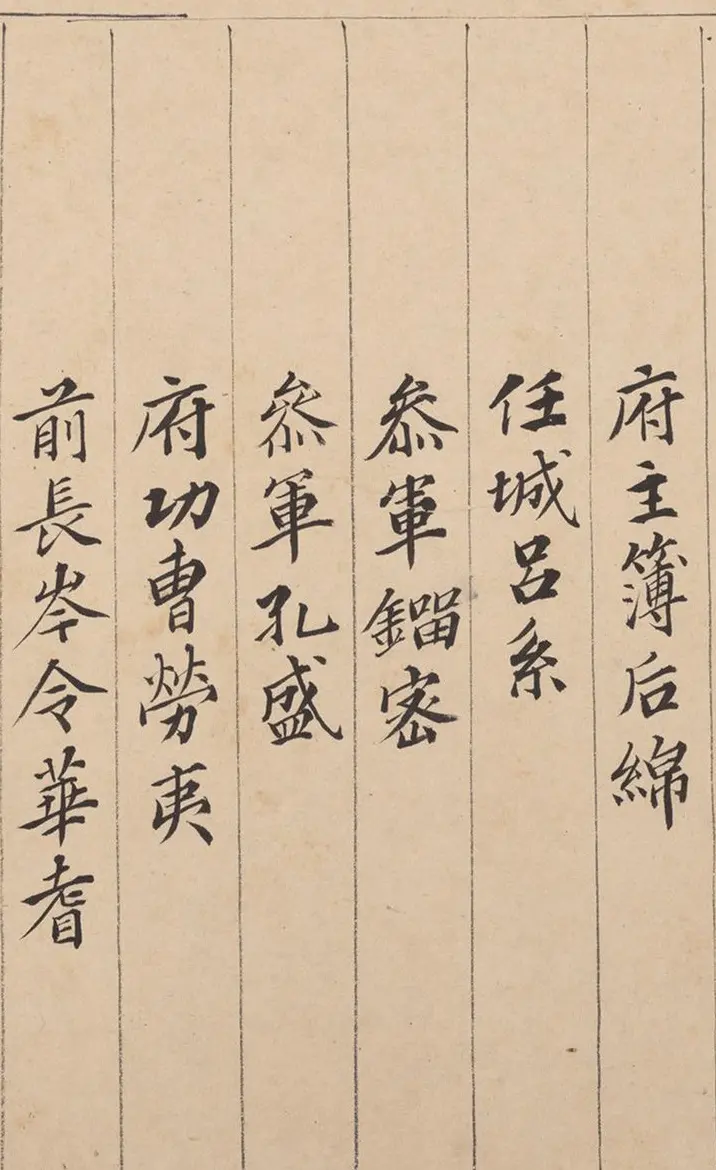 府主簿后綿
任城呂系
叅軍鎦密
叅軍孔盛
府功曹勞夷
前長岑令華耆